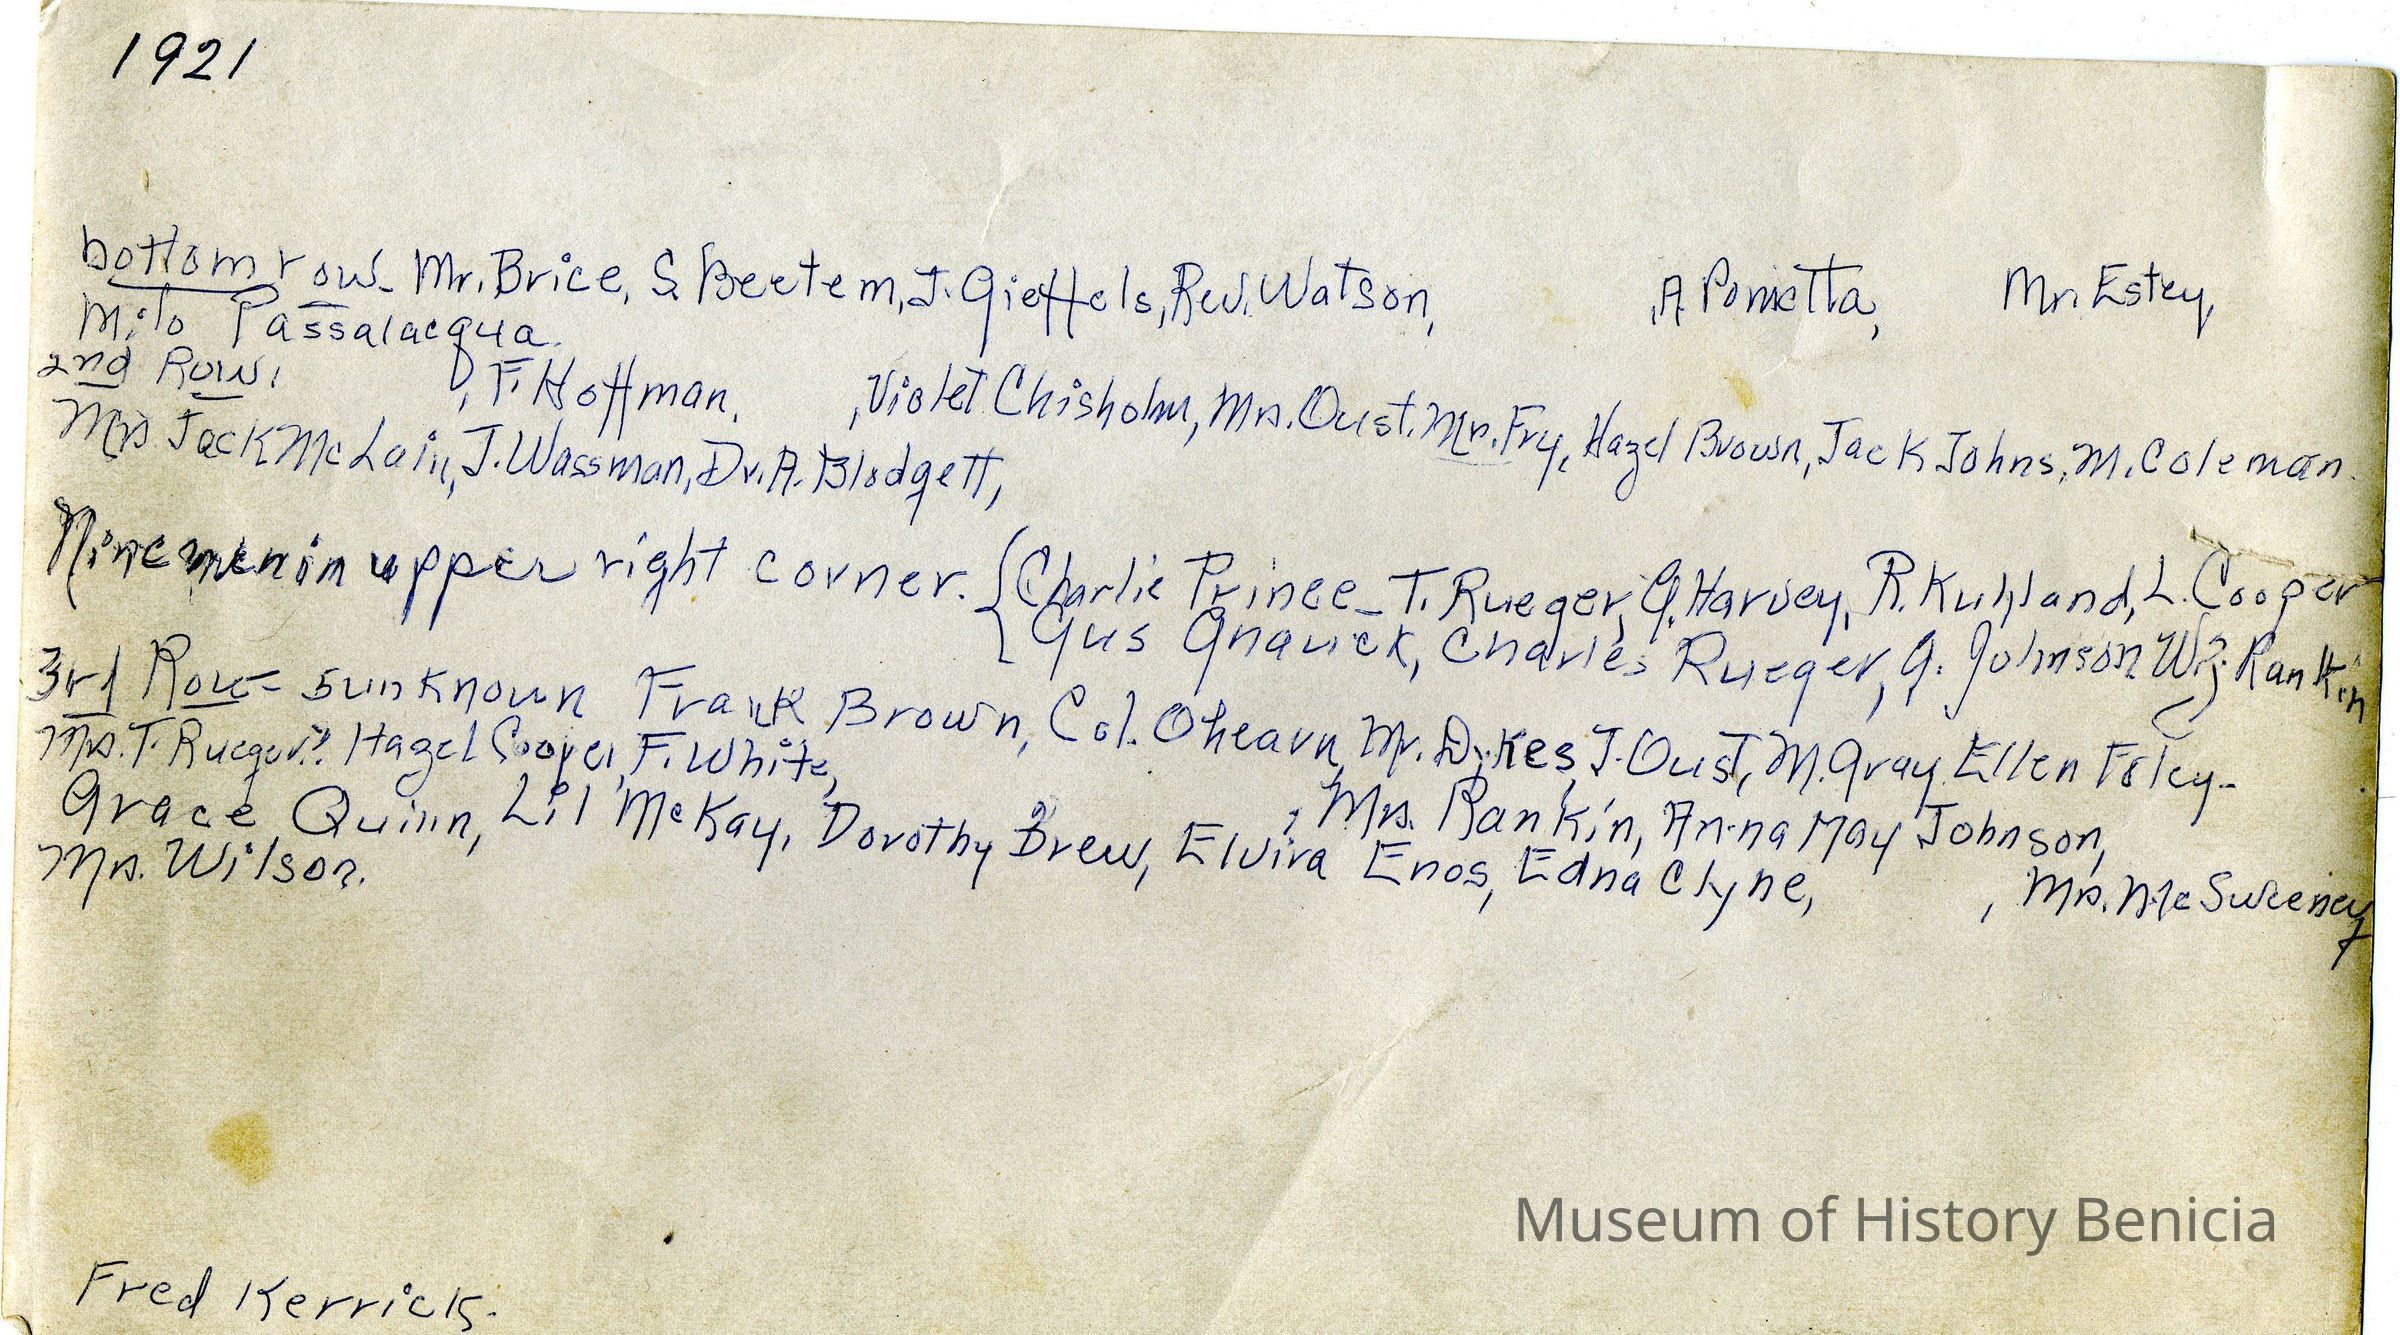 1921
bottom row- Mr. Brice, S. Beetem, J. Gieffels, Rev. Watson, , A Ponietta, Mr. Estey,
Milo Passalacqua.
2nd Row, , F. Hoffman, , Violet Chisholm, Mrs. Oust. Mr. Fry, Hazel Brown, Jack Johns, M. Coleman.
Mrs. Jack McLain, J. Wassman, Dr. A. Blodgett,
Nine men in upper right corner. { Charlie Prince - T. Rueger, G. Harvey, R. Kuhland, L. Cooper
Gus Gnauick, Charles Rueger, G. Johnson Rankin
3rd Row - 5 unknown Frank Brown, Col. Ohearn, Mr. Dykes, J. Oust, M. Gray, Ellen Foley-
Mrs. T. Rueger?, Hazel Cooper, F. White, , Mrs. Rankin, Anna May Johnson,
Grace Quinn, Lil McKay, Dorothy Drew, Elvira Enos, Edna Clyne, , Mrs. McSweeney
Mrs. Wilson.
Museum of History Benicia
Fred Kerrick.